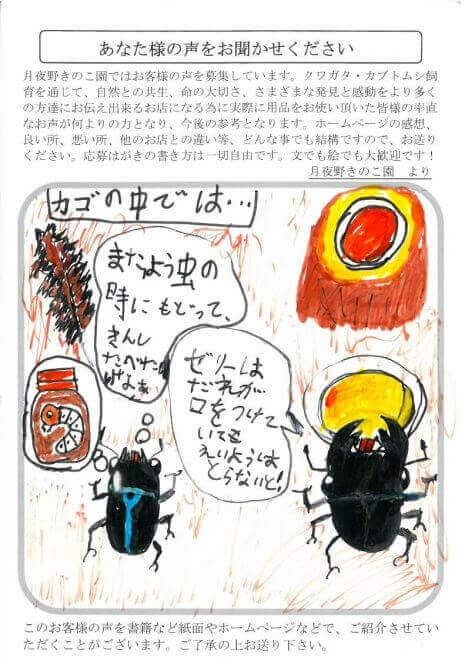 あなた様の声をお聞かせください
月夜野きのこ園ではお客様の声を募集しています。クワガタ・カブトムシ飼
育を通じて、自然との共生、命の大切さ、さまざまな発見と感動をより多く
の方達にお伝え出来るお店になる為に実際に用品をお使い頂いた皆様の率直
なお声が何よりの力となり、今後の参考となります。ホームページの感想、
良い所、悪い所、他のお店との違い等、どんな事でも結構ですので、お送り
ください。応募はがきの書き方は一切自由です。文でも絵でも大歓迎です！
月夜野きのこ園　より
カゴの中では…
またよう虫の
時にもどって、
きんし
たべたい
ゼリーは
だれが
口をつけて
いても
えいようは
とらないと!
このお客様の声を書籍など紙面やホームページなどで、ご紹介させていた
だくことがございます。ご了承の上お送り下さい。